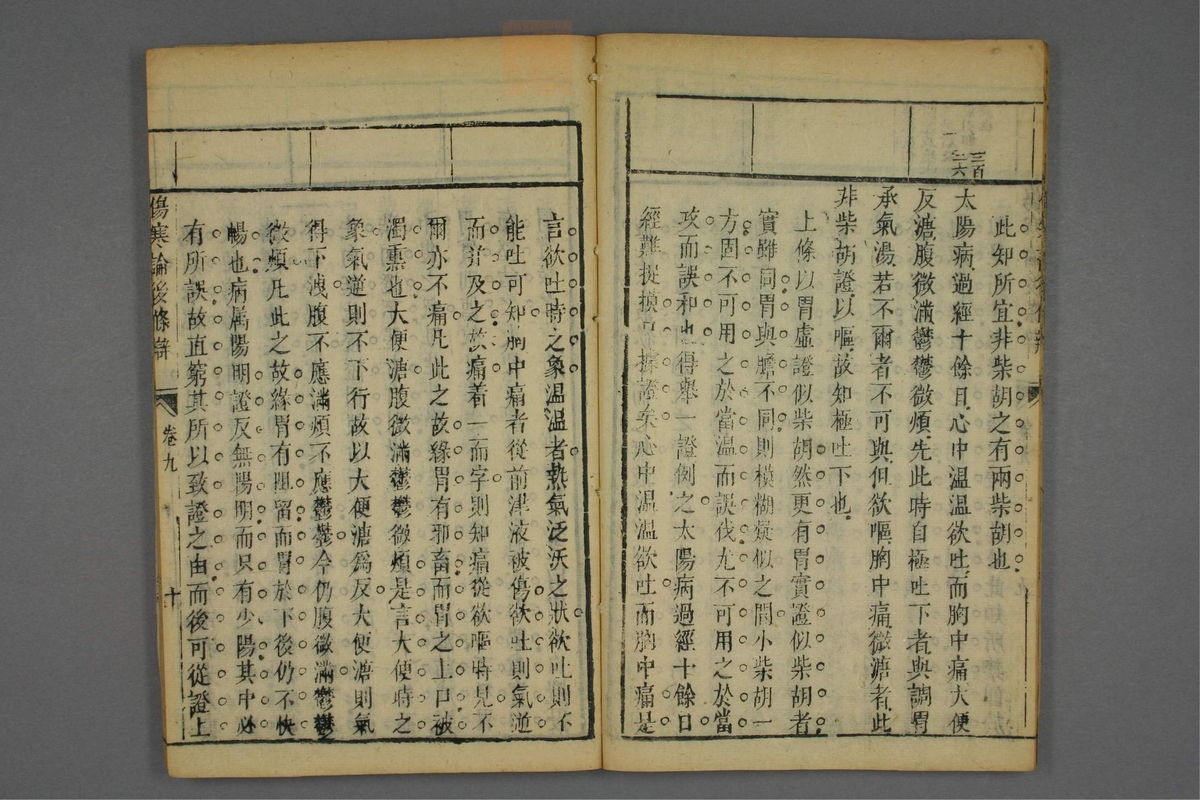 三百二六
此知所宜非柴胡之有兩柴胡也
太陽病過經十餘日心中温温欲吐而胸中痛大便
反溏腹微滿鬱鬱微煩先此時自極吐下者與調胃
承氣湯若不爾者不可與但欲嘔胸中痛微溏者此
非柴胡證以嘔故知極吐下也
上條以胃虛證似柴胡然更有胃實證似柴胡者
實難同胃與膽不同則模糊疑似之間小柴胡一
方固不可用之於當温而誤伐尤不可用之於當
攻而誤和也得舉一證例之太陽病過經十餘日
經難捉摸證矣心中温温欲吐而胸中痛是
言欲吐時之象温温者熱氣泛沃之狀欲吐則不
能吐可知胸中痛者從前津液被傷欲吐則氣逆
而并及之故痛着一而字則知痛從欲嘔時見不
爾亦不痛凡此之故緣胃有邪畜而胃之上口被
濁熏也大便溏腹微滿鬱鬱微煩是言大便時之
象氣逆則不下行故以大便溏爲反大便溏則氣
得下洩腹不應滿煩不應鬱鬱今仍腹微滿鬱鬱
微煩凡此之故緣胃有阻留而胃於下後仍不快
暢也病属陽明證反無陽明而只有少陽其中必
有所誤故直窮其所以致證之由而後可從證上
傷寒論後條辨
卷九
十